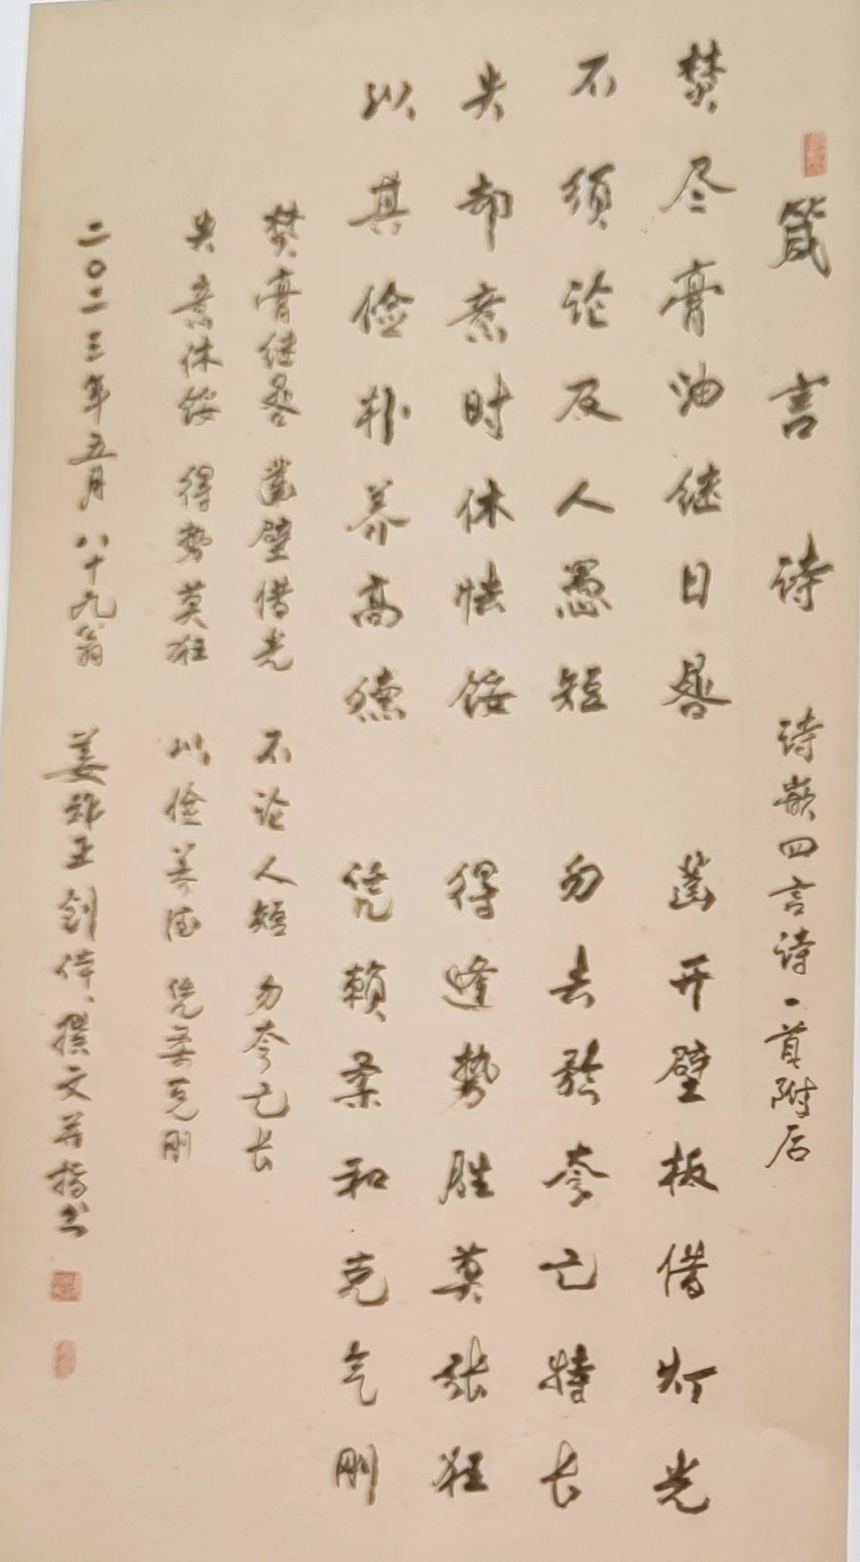 箴言诗 诗嵌四言诗一首附后
焚尽膏油继日晷 凿开壁板借灯光
不须论及人愚短 勿去矜夸己特长
失却意时休怯馁 得逢势胜莫张狂
以其俭朴养高德 凭赖柔和克气刚
焚膏继晷 凿壁借光 不论人短 勿夸己长
失意休馁 得势莫狂 以俭养德 凭柔克刚
二〇二三年五月 八十九翁 姜 玉剑倚 撰文并指书